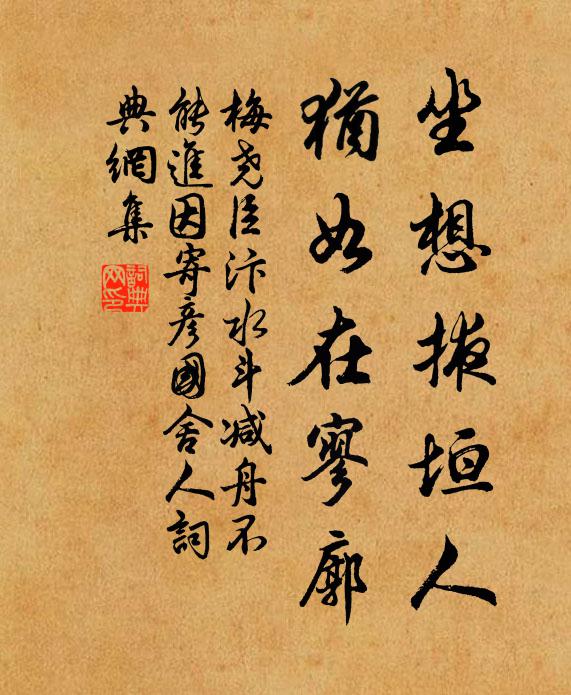 坐想掖垣人
猶如在寥廓
梅尧臣汴水斗减舟不
能進因寄彥國舍人詞
典網集
詞典网印